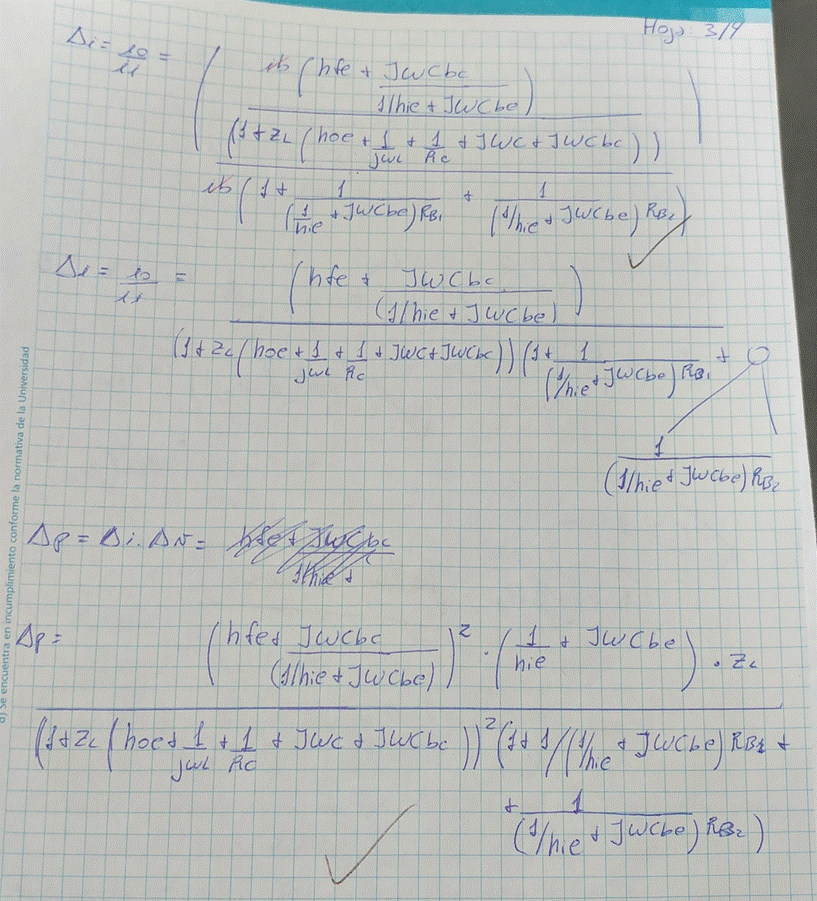 Hoja: 3/4
Δi = io/i1 = ( ib ( hfe + JWCbc / (1/hie + JWCbe) ) / (1+ZL ( hoe + 1/jWL + 1/Rc + JWC + JWCbc )) ) / ib ( 1 + 1 / (1/hie + JWCbe) RB1 + 1 / (1/hie + JWCbe) RB2 )
Δi = io/i1 = ( hfe + JWCbc / (1/hie + JWCbe) ) / (1+ZL ( hoe + 1/jWL + 1/Rc + JWC + JWCbc )) ( 1 + 1 / (1/hie + JWCbe) RB1 +
1 / (1/hie + JWCbe) RB2
Δp = Δi. ΔN = hfe + JWCbc / 1/hie +
Δp = ( hfe + JWCbc / (1/hie + JWCbe) )² · ( 1/hie + JWCbe ) . ZL / (1+ZL ( hoe + 1/jWL + 1/Rc + JWC + JWCbc ))² ( 1 + 1/(1/hie + JWCbe) RB1 +
+ 1 / (1/hie + JWCbe) RB2 )
se encuentra en incumplimiento conforme la normativa de la Universidad